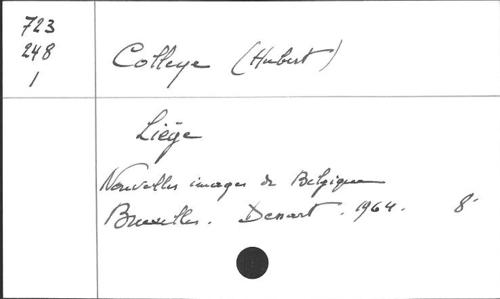 723
248
1
Colleye (Hubert)
Liège
Nouvelles images de Belgique
Bruxelles. Dessart. 1964. 8°